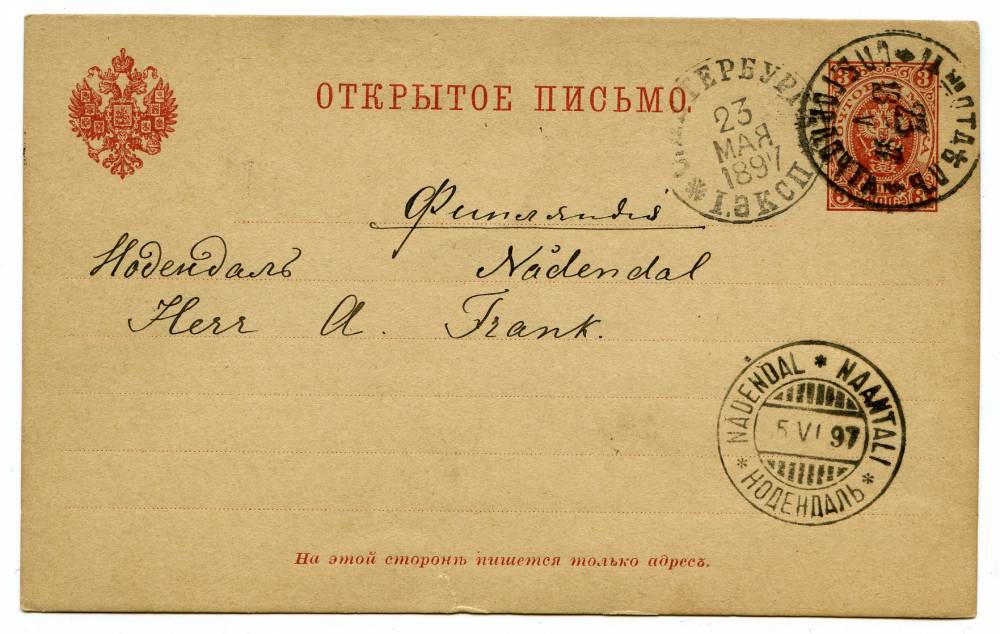 ОТКРЫТОЕ ПИСЬМО.
С.ПЕТЕРБУРГЪ
23
МАЯ
1897
* I.ЭКСП *
ОТДѢЛЪ
23
V
3
3
3
3
Финляндія
Нодендаль Nådendal
Herr A. Frank.
NÅDENDAL * NAANTALI
5 VI 97
* НОДЕНДАЛЬ *
На этой сторонѣ пишется только адресъ.